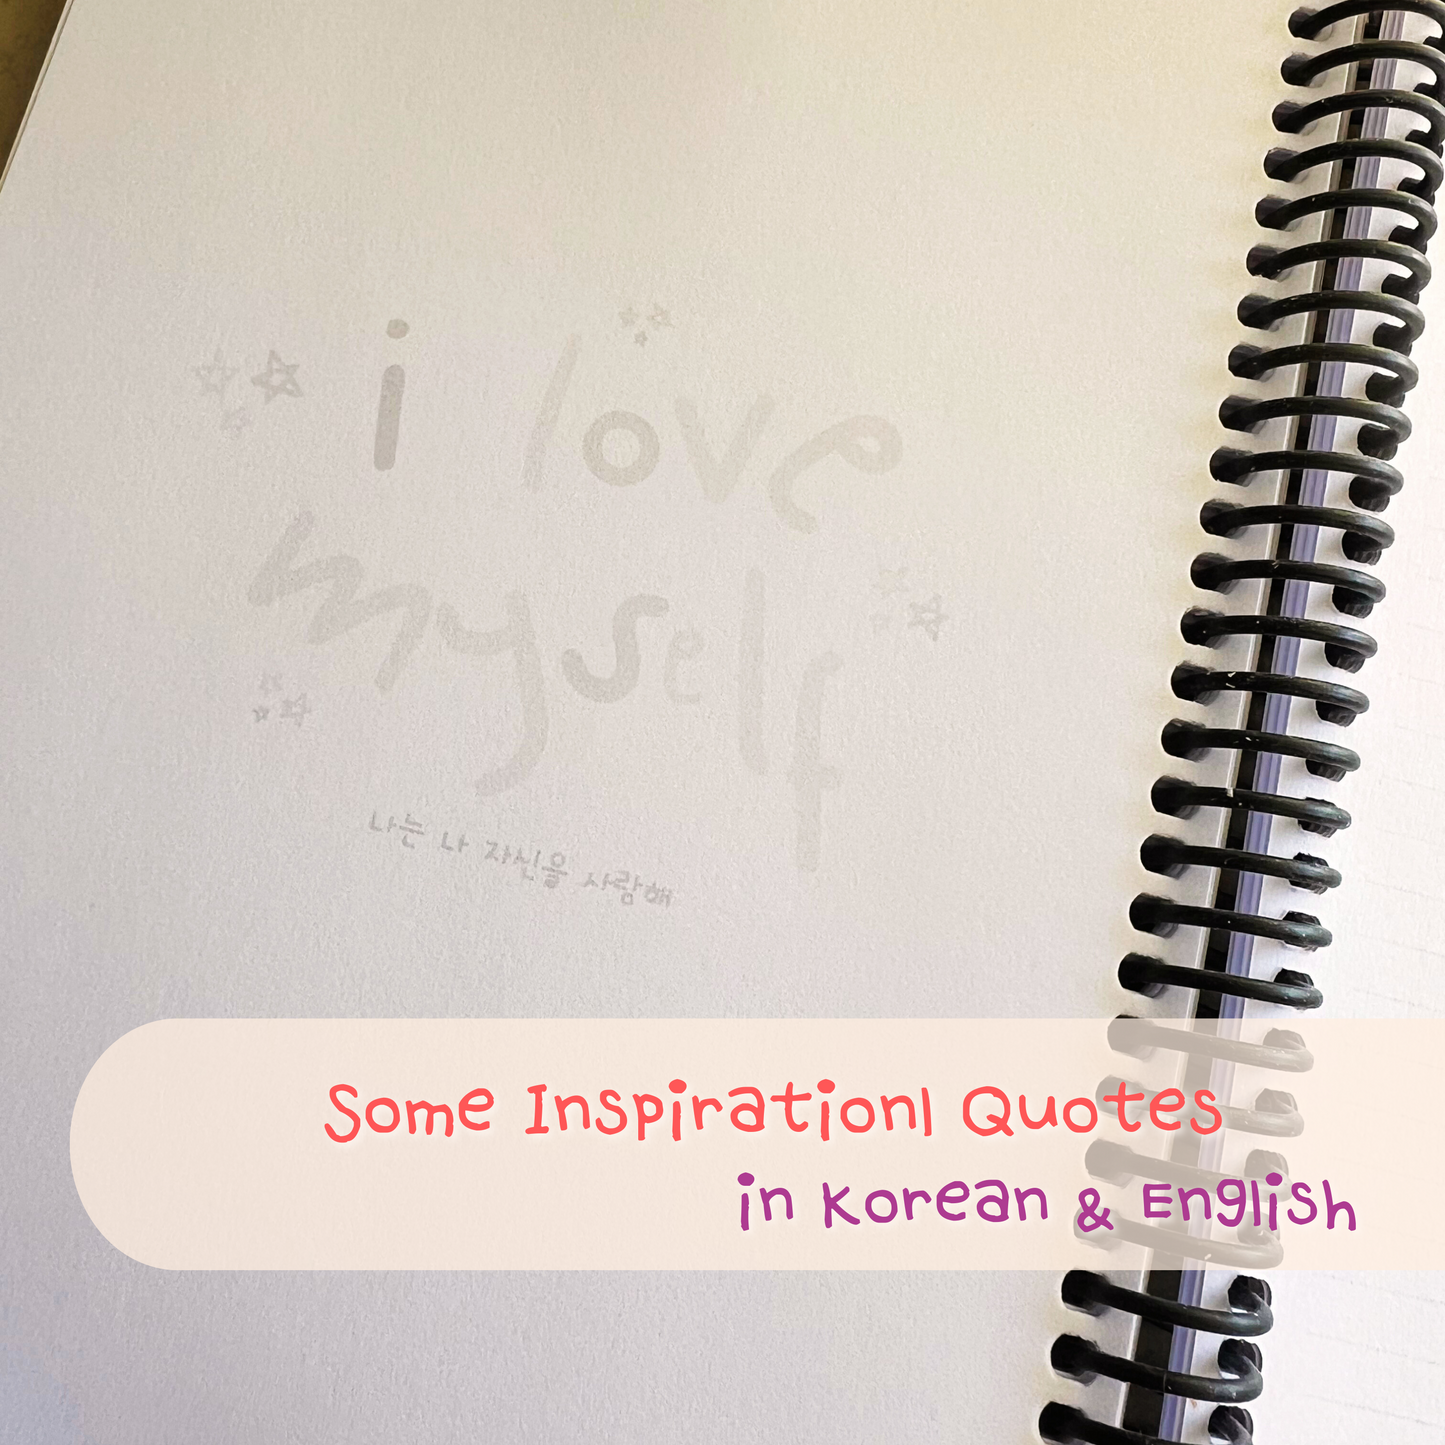 i love
myself
나는 나 자신을 사랑해
Some Inspirationl Quotes
in Korean & English